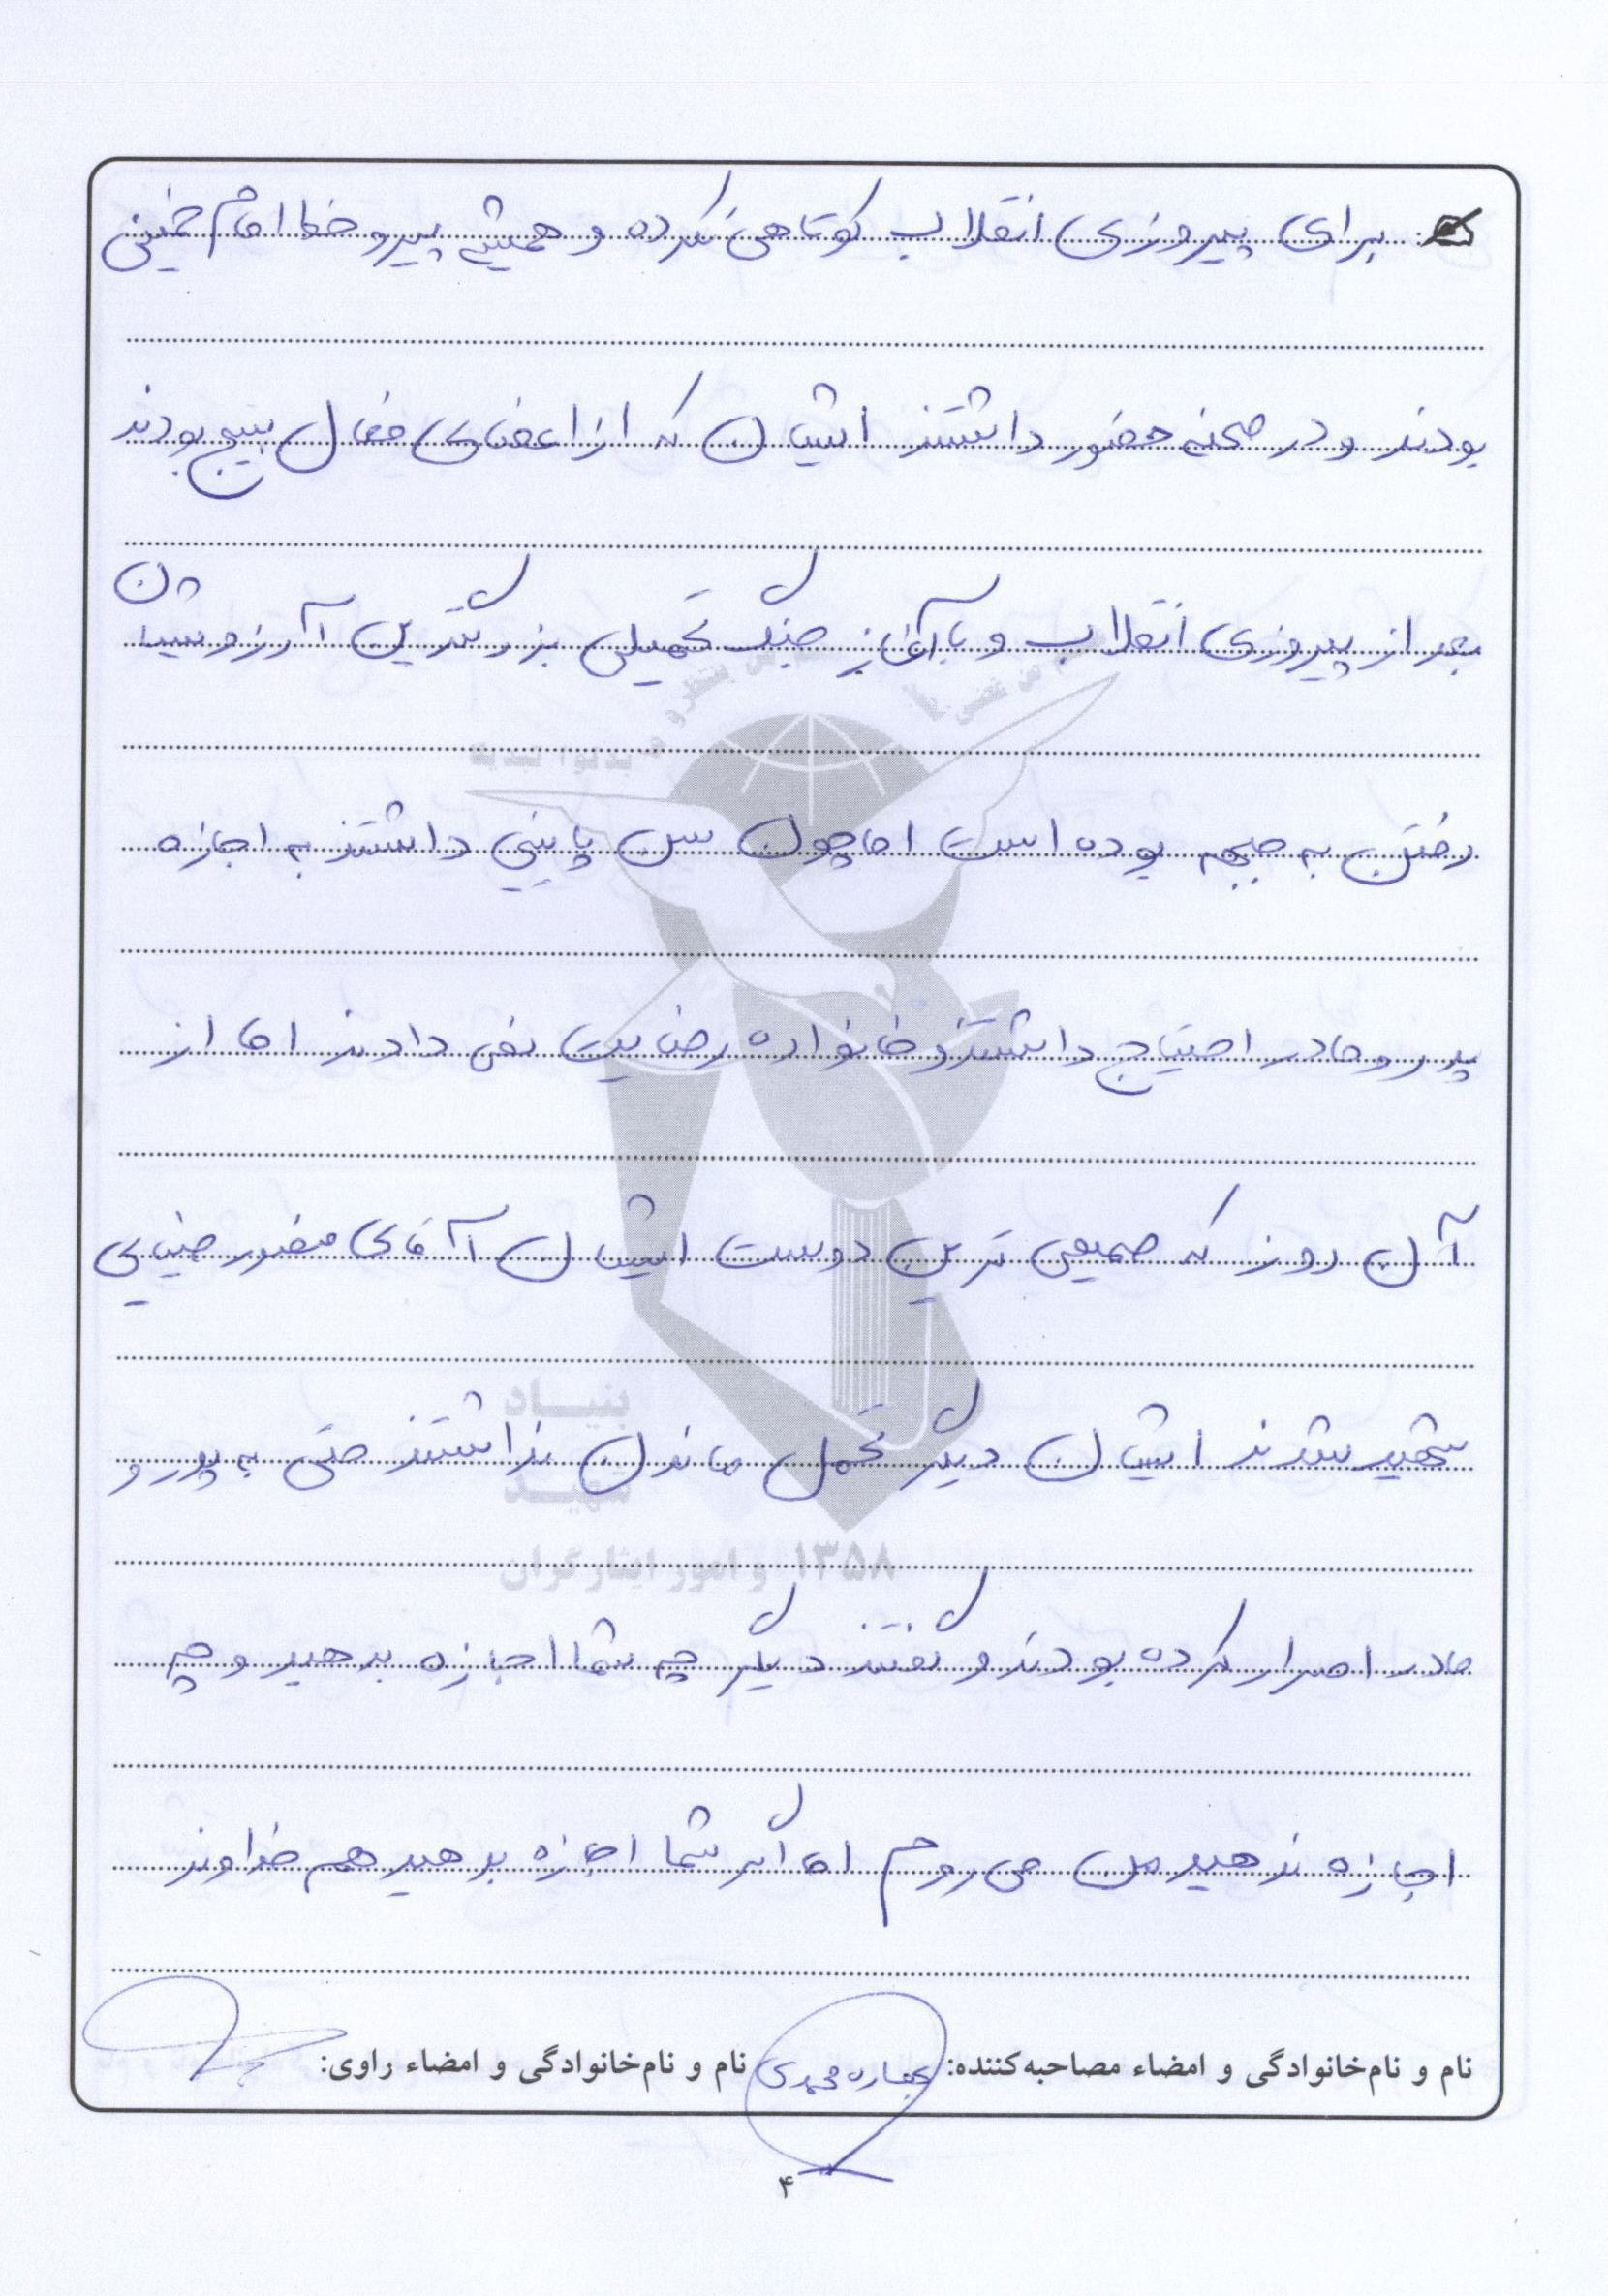 برای پیروزی انقلاب کوتاهی نکرده و همیشه پیرو خط امام خمینی
بودند و در صحنه حضور داشتند ایشان که از اعضای فعال بسیج بودند
بعد از پیروزی انقلاب و با آغاز جنگ تحمیلی بزرگترین آرزوشان
رفتن به جبهه بوده است اما چون سن پایینی داشتند به اجازه
پدر و مادر احتیاج داشتند و خانواده رضایت نمی دادند اما از
آن روز که صمیمی ترین دوست ایشان آقای منصور ضیایی
شهید شدند ایشان دیگر تحمل ماندن نداشتند حتی به پدر و
مادر اصرار کرده بودند و گفتند دیگر چه شما اجازه بدهید و چه
اجازه ندهید من می روم اما اگر شما اجازه بدهید هم خداوند
نام و نام‌خانوادگی و امضاء مصاحبه‌کننده: محمدی نام و نام‌خانوادگی و امضاء راوی:
۴
بنیاد
شهید
و امور ایثارگران
۱۳۵۸